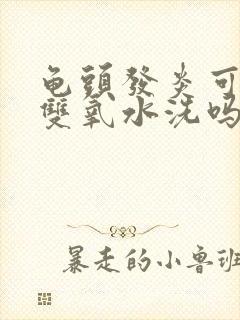 龟頭發炎可
雙氧水洗吗
暴走的小鲁班